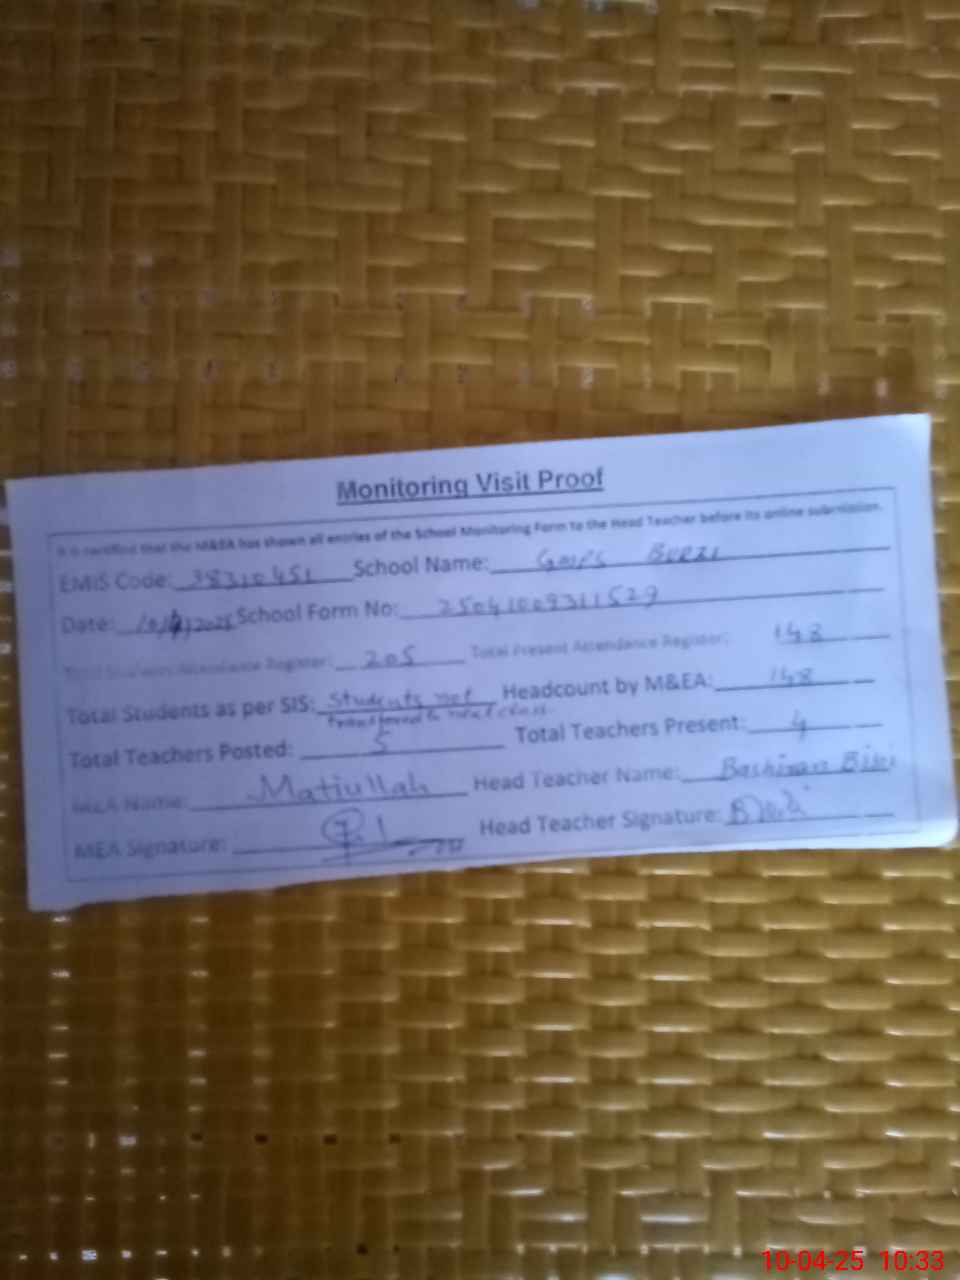 Monitoring Visit Proof
It is certified that the M&EA has shown all entries of the School Monitoring Form to the Head Teacher before its online submission.
EMIS Code: 38310451 School Name: BURZI
Date: 10/4/2025 School Form No: 25041009311529
Total Students Attendance Register: 205 Total Present Attendance Register: 148
Total Students as per SIS: Students not Headcount by M&EA: 148
transfered to next class.
Total Teachers Posted: 5 Total Teachers Present: 4
MEA Name: Matiullah Head Teacher Name: Bashiran Bibi
MEA Signature: Head Teacher Signature:
10-04-25 10:33